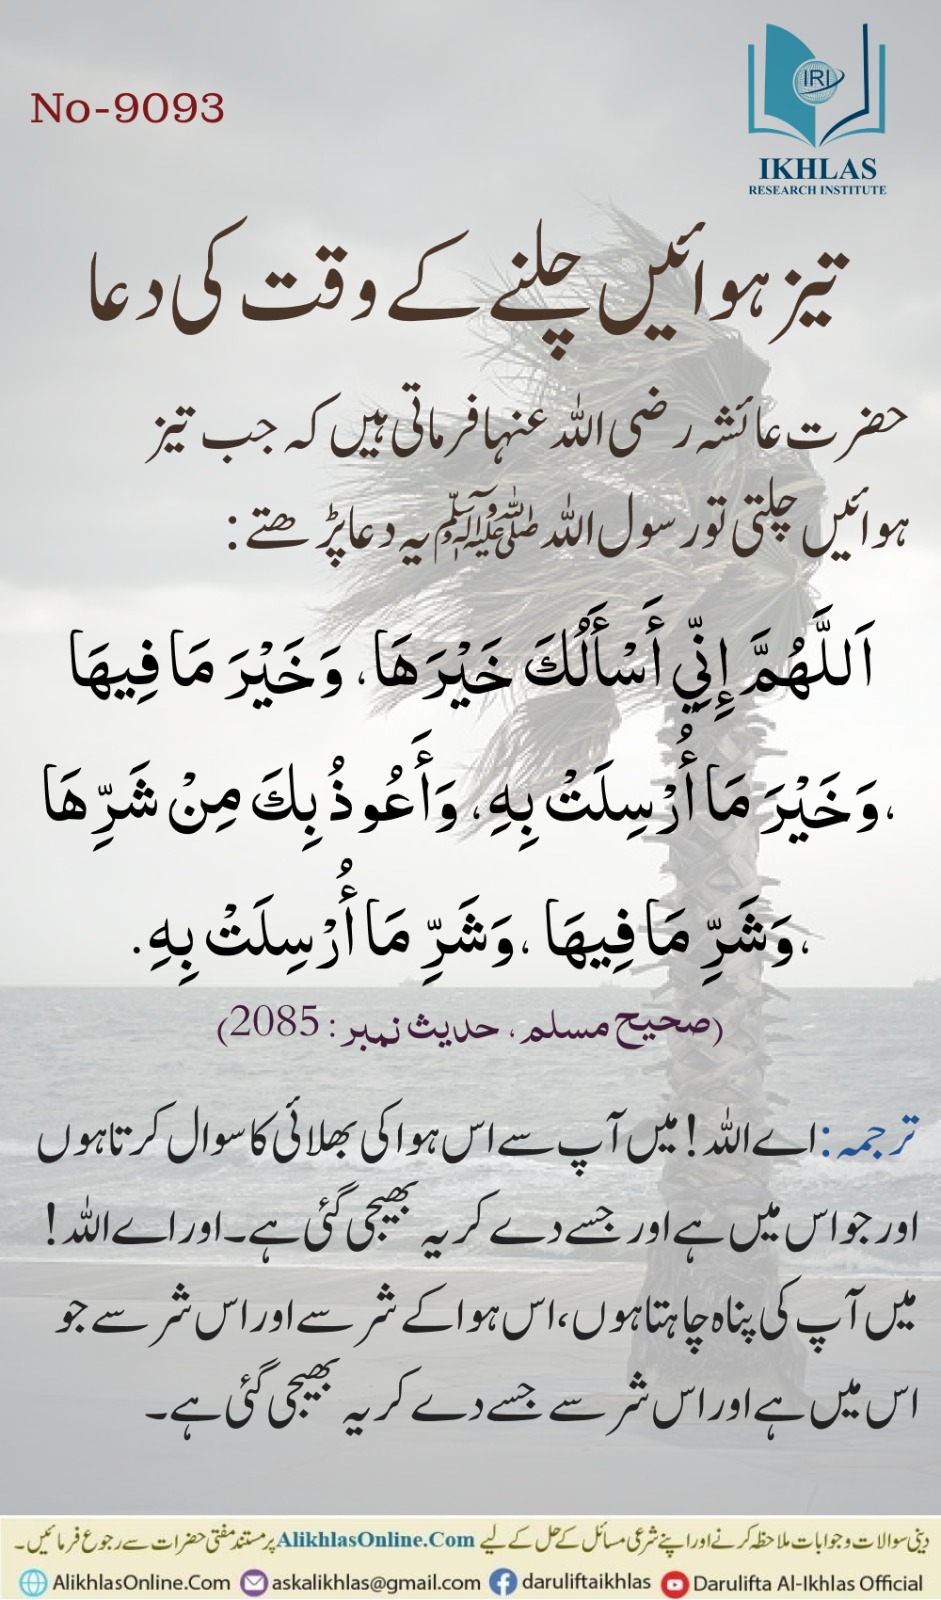 No-9093
IRI
IKHLAS
RESEARCH INSTITUTE
تیز ہوائیں چلنے کے وقت کی دعا
حضرت عائشہ رضی اللہ عنہا فرماتی ہیں کہ جب تیز
ہوائیں چلتی تو رسول اللہ ﷺ یہ دعا پڑھتے:
اَللَّهُمَّ إِنِّي أَسْأَلُكَ خَيْرَهَا، وَخَيْرَ مَا فِيهَا
،وَخَيْرَ مَا أُرْسِلَتْ بِهِ، وَأَعُوذُ بِكَ مِنْ شَرِّهَا
،وَشَرِّ مَا فِيهَا ،وَشَرِّ مَا أُرْسِلَتْ بِهِ.
(صحیح مسلم، حدیث نمبر: 2085)
ترجمہ: اے اللہ! میں آپ سے اس ہوا کی بھلائی کا سوال کرتا ہوں
اور جو اس میں ہے اور جسے دے کر یہ بھیجی گئی ہے۔ اور اے اللہ!
میں آپ کی پناہ چاہتا ہوں، اس ہوا کے شر سے اور اس شر سے جو
اس میں ہے اور اس شر سے جسے دے کر یہ بھیجی گئی ہے۔
دینی سوالات و جوابات ملاحظہ کرنے اور اپنے شرعی مسائل کے حل کے لیے AlikhlasOnline.Com پر مستند مفتی حضرات سے رجوع فرمائیں۔
AlikhlasOnline.Com askalikhlas@gmail.com daruliftaikhlas Darulifta Al-Ikhlas Official